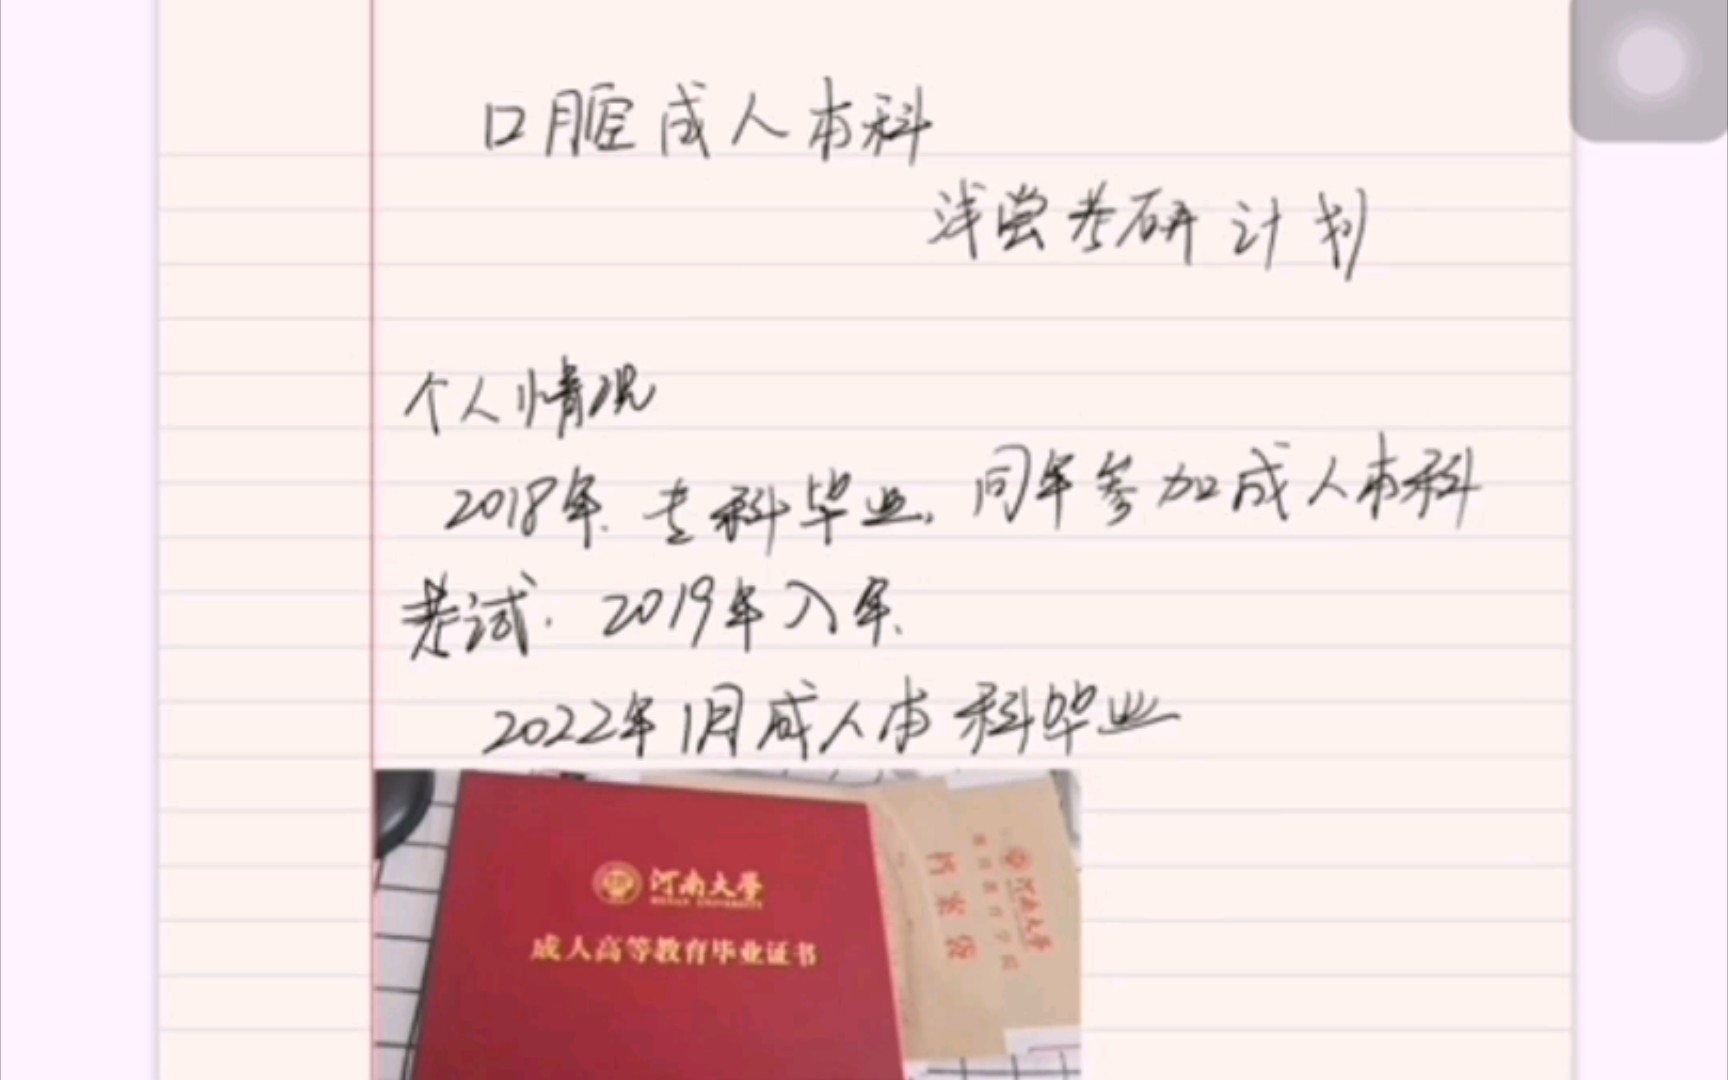 口腔成人本科
浅尝考研计划
个人情况
2018年.专科毕业,同年参加成人本科
考试.2019年入年.
2022年1月成人本科毕业
河南大學
HENAN UNIVERSITY
成人高等教育毕业证书
河南大學
档案袋